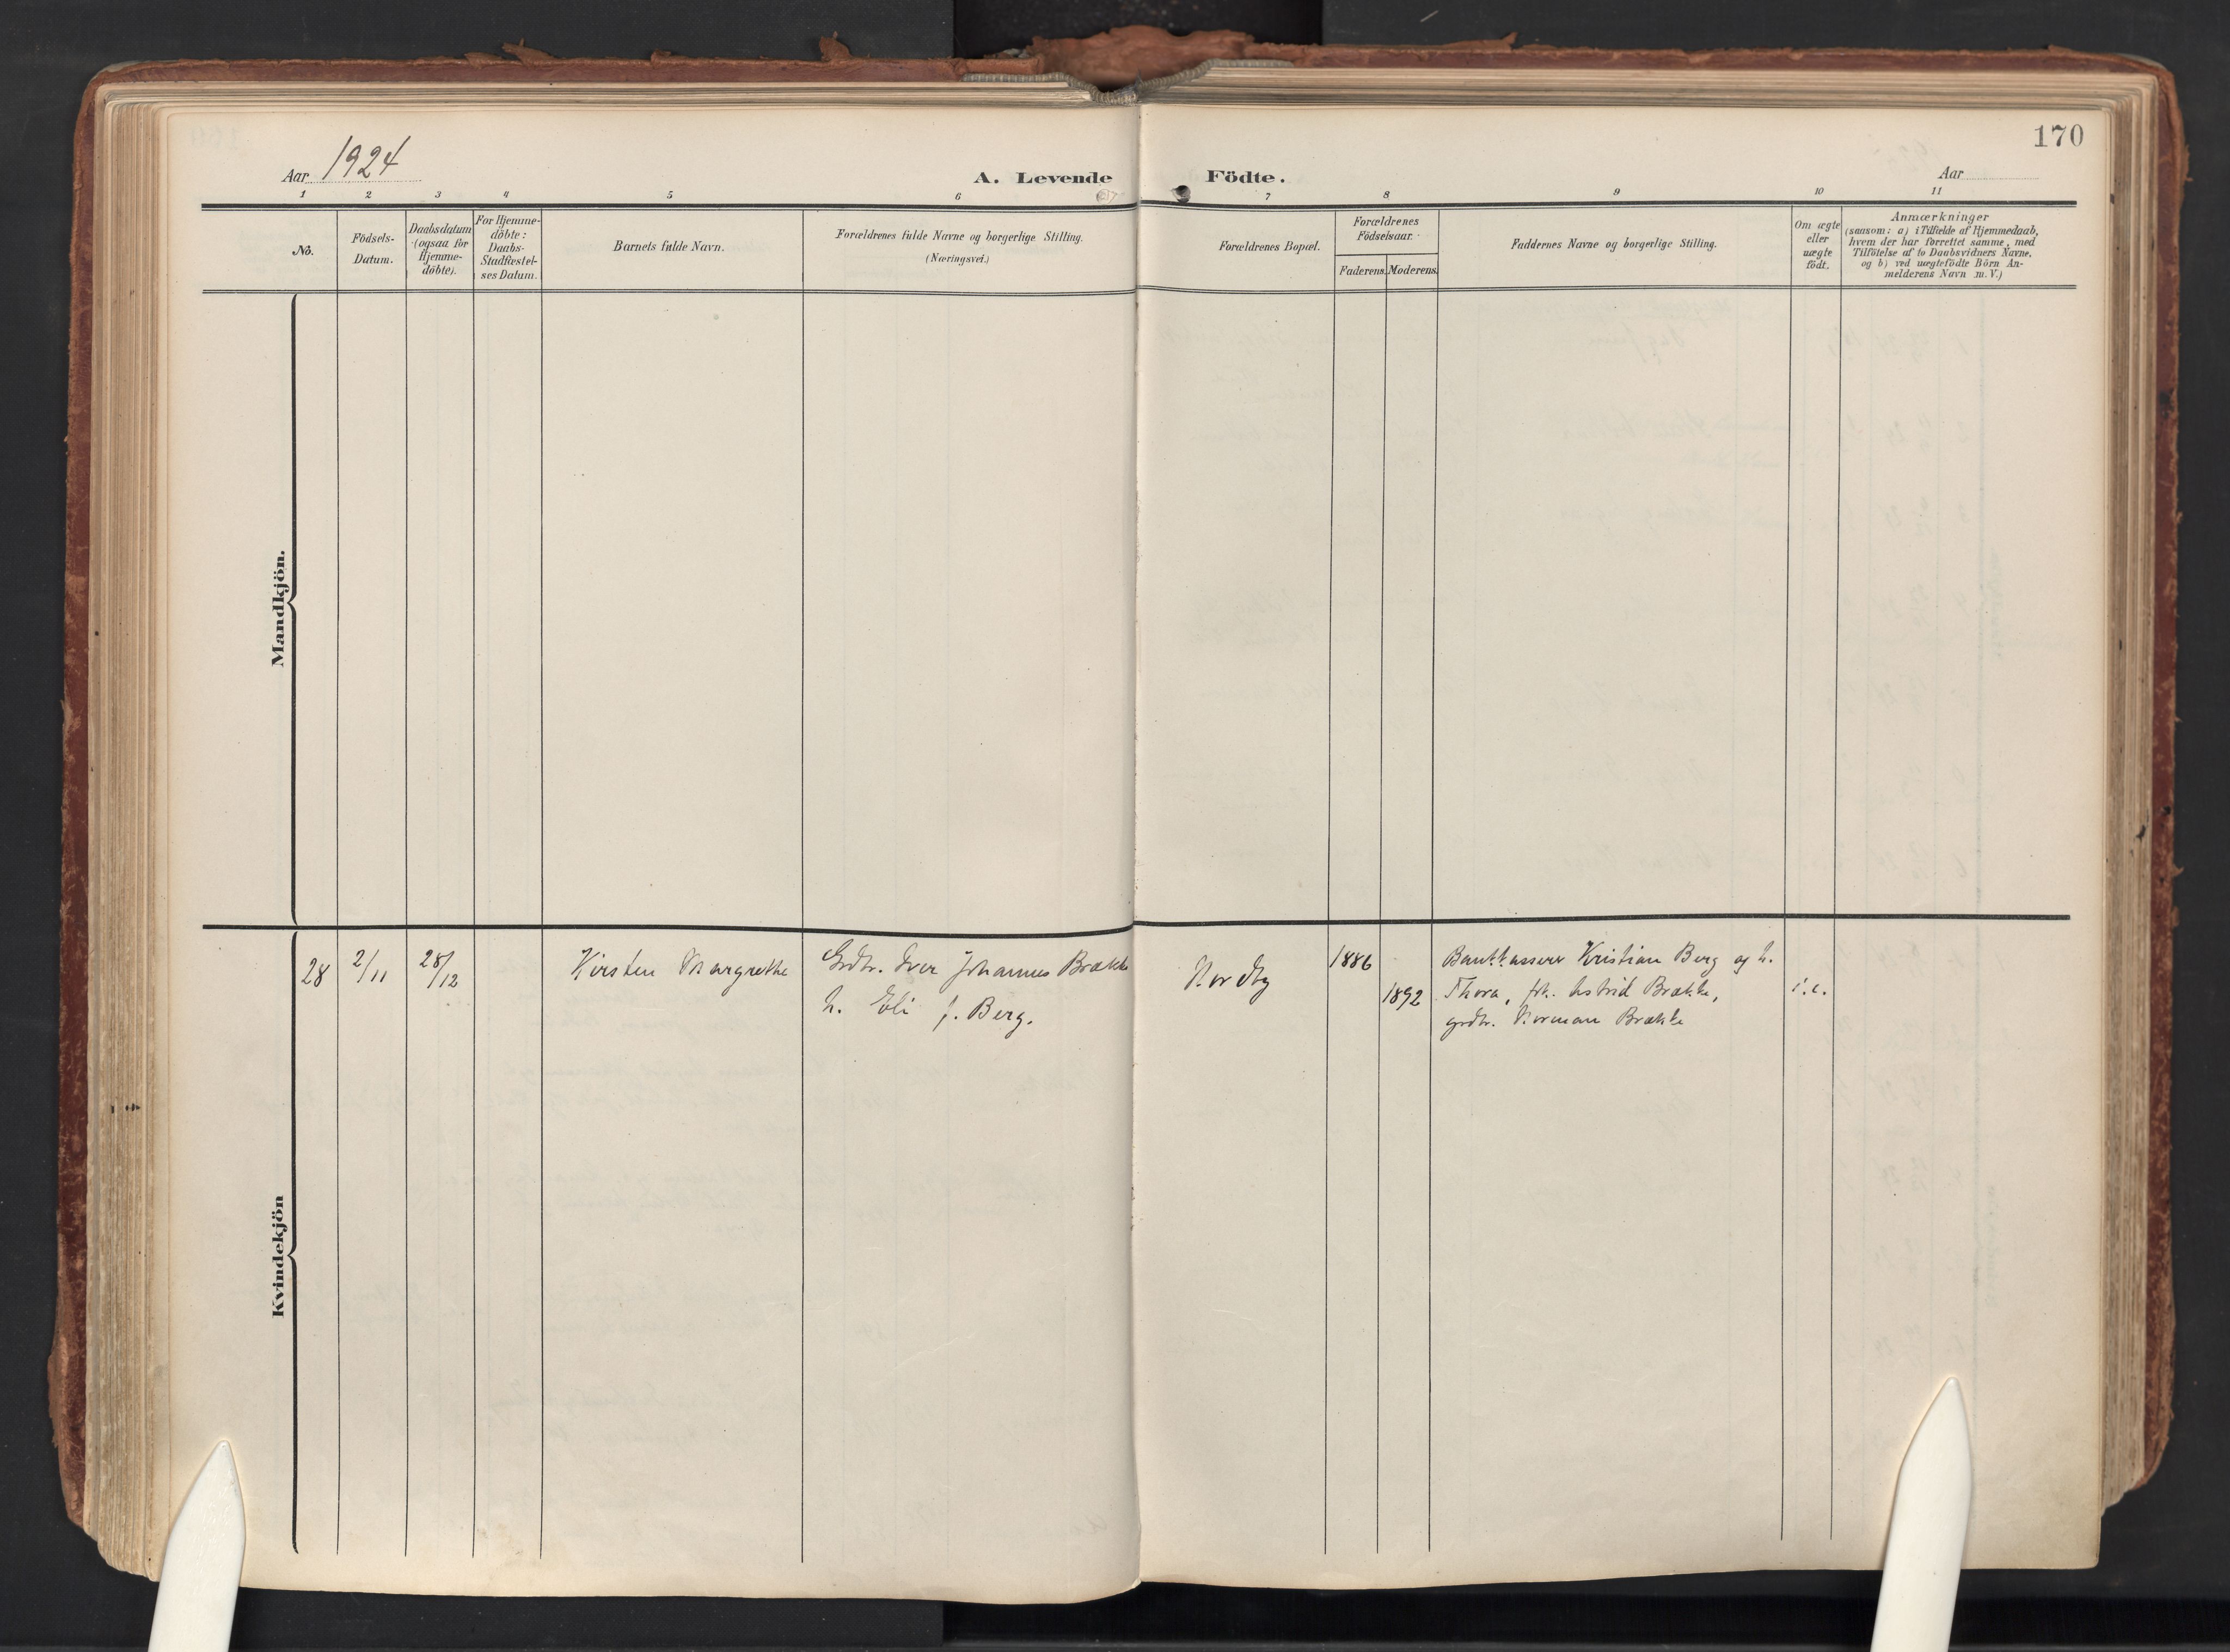 170
Aar 1924
A. Levende Födte.
Aar
1 2 3 4 5 6 7 8 9 10 11
No.
Födsels-
Datum.
Daabsdatum
(ogsaa for
Hjemme-
döbte).
For Hjemme-
döbte:
Daabs-
Stadfæstel-
ses Datum.
Barnets fulde Navn.
Forældrenes fulde Navne og borgerlige Stilling.
(Næringsvei.)
Forældrenes Bopæl.
Forældrenes
Födselsaar.
Faderens. Moderens.
Faddernes Navne og borgerlige Stilling.
Om ægte
eller
uægte
födt.
Anmærkninger
(saasom: a) i Tilfælde af Hjemmedaab,
hvem der har forrettet samme, med
Tilföielse af to Daabsvidners Navne,
og b) ved uægtefödte Börn An-
melderens Navn m. V.)
Mandkjön.
Kvindekjön
28 2/11 28/12 Kirsten Margrethe
Grdbr. Iver Johannes Brække
h. Eli f. Berg.
Nordby
1886
1892
Bankkasserer Kristian Berg og h.
Thora, frk. Astrid Brække,
grdbr. Norman Brække